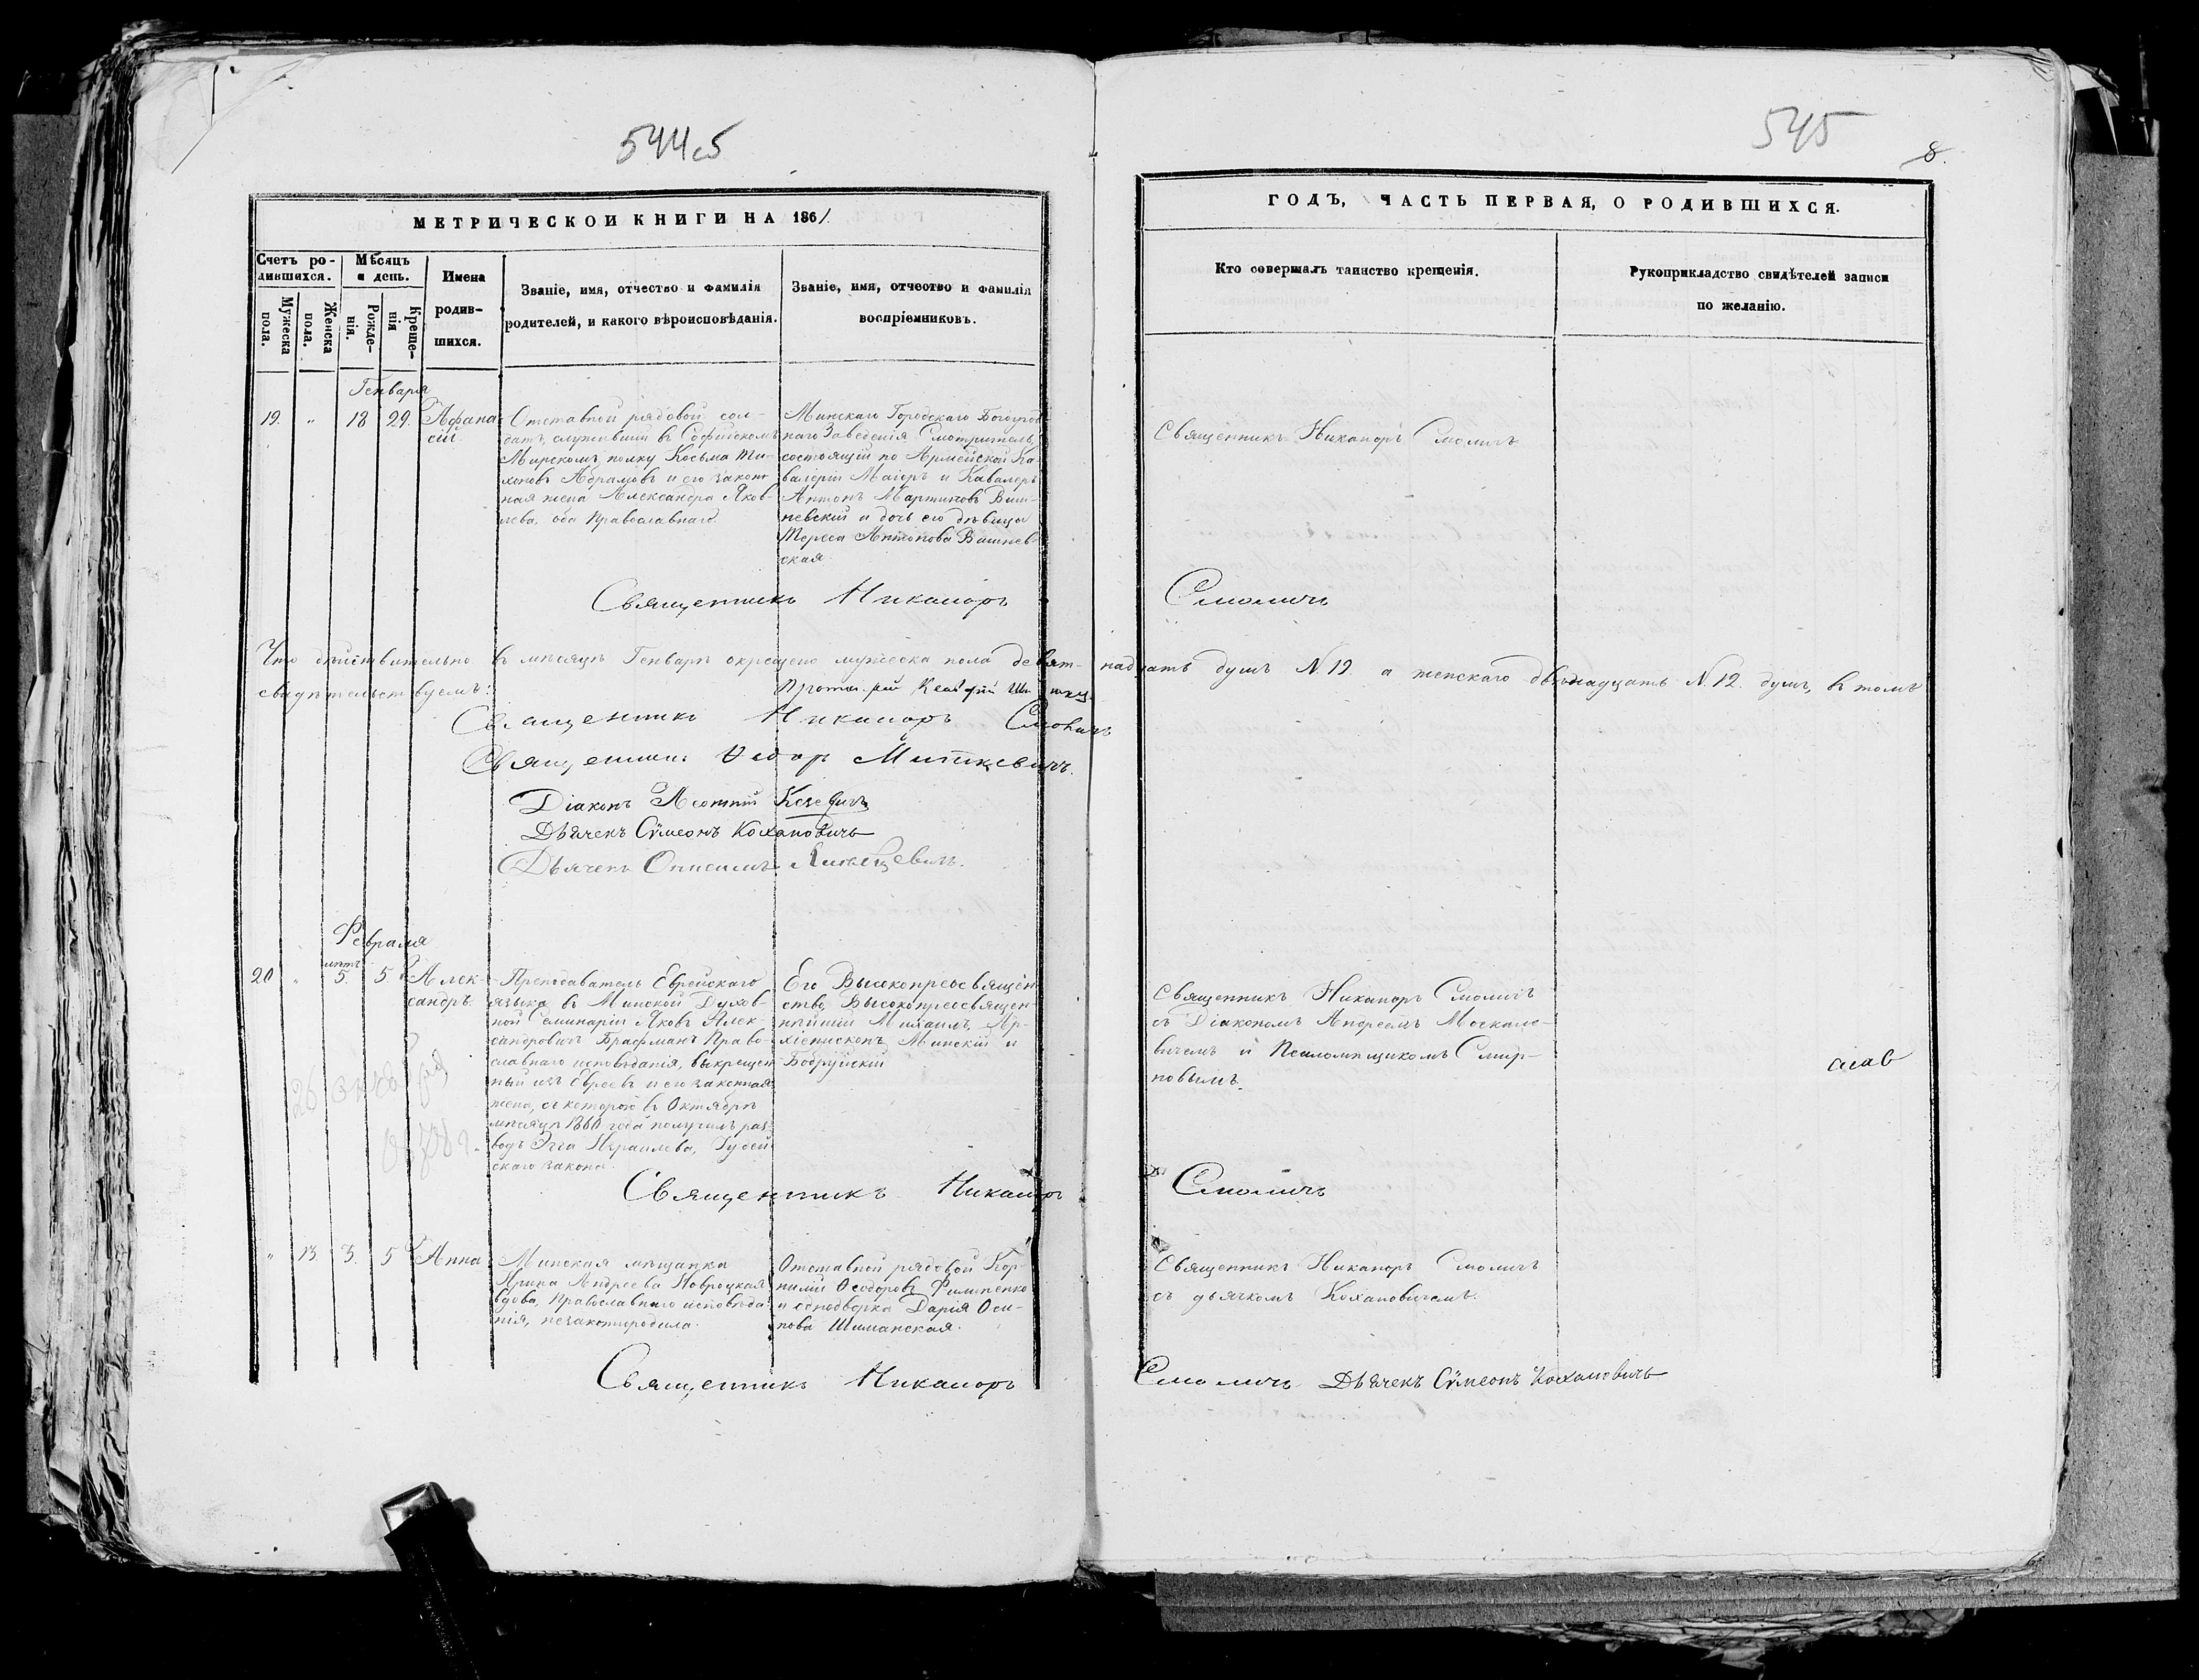 544 об
545
8.
МЕТРИЧЕСКОЙ КНИГИ НА 1861
ГОДЪ, ЧАСТЬ ПЕРВАЯ, О РОДИВШИХСЯ.
Счетъ ро-
дившихся.
Мужеска
пола.
Женска
пола.
Мѣсяцъ
и день.
Рожде-
нія.
Креще-
нія
Имена
родив-
шихся.
Званіе, имя, отчество и фамилія
родителей, и какого вѣроисповѣданія.
Званіе, имя, отчество и фамилія
воспріемниковъ.
Кто совершалъ таинство крещенія.
Рукоприкладство свидѣтелей записи
по желанію.
Генваря
19. " 18 29. Афана-
сій.
Отставной рядовой сол-
датъ, служившій въ Софійскомъ
Мирскомъ полку Косьма Ти-
хоновъ Абрамовъ и его закон-
ная жена Александра Яков-
лева, оба Православнаго.
Минскаго Городскаго Богоугод-
наго Заведенія Смотритель,
состоящій по Армейской Ка-
валеріи Маіоръ и Кавалеръ
Антонъ Мартиновъ Виш-
невскій и дочь его дѣвица
Тереса Антонова Вишнев-
ская.
Священникъ Никаноръ Смоличъ
Священникъ Никаноръ Смоличъ
Что дѣйствительно въ мѣсяцѣ Генварѣ окрещено мужеска пола девят-надцать душъ N. 19. а женскаго двѣнадцать N. 12. душъ, въ томъ
свидѣтельствуемъ:
Священникъ Никаноръ Смоличъ
Священникъ Ѳедоръ Миткевичъ.
Діаконъ Леонтій
Дьячекъ Сѵмеонъ Кохановичъ
Дьячекъ Онисимъ
Февраля
20 " лѣтъ 5. 5. Алек-
сандръ.
Преподаватель Еврейскаго
языка въ Минской Духов-
ной Семинаріи Яковъ Алек-
сандровичъ Брафманъ Право-
славнаго исповѣданія, выкрещен-
ный изъ Евреевъ и его законная
жена, съ которою въ Октябрѣ
мѣсяцѣ 1860 года получилъ раз-
водъ Эта Израилева, Іудей-
скаго закона.
Его Высокопреосвящен-
ство, Высокопреосвящен-
нѣйшій Михаилъ, Ар-
хіепископъ Минскій и
Бобруйскій
Священникъ Никаноръ Смоличъ
съ Діакономъ Андреемъ Москале-
вичемъ и Псаломщикомъ Смир-
новымъ.
Священникъ Никаноръ Смоличъ
" 13. 3. 5 Анна
Минская мѣщанка
Ирина Андреева Навроцкая
вдова, Православнаго исповѣда-
нія, незаконнородила.
Отставной рядовой Кор-
нилій Ѳеодоровъ Филипенко
и однодворка Дарія Оси-
пова Шиманская.
Священникъ Никаноръ Смоличъ
съ дьячкомъ Кохановичемъ.
Священникъ Никаноръ Смоличъ Дьячекъ Сѵмеонъ Кохановичъ